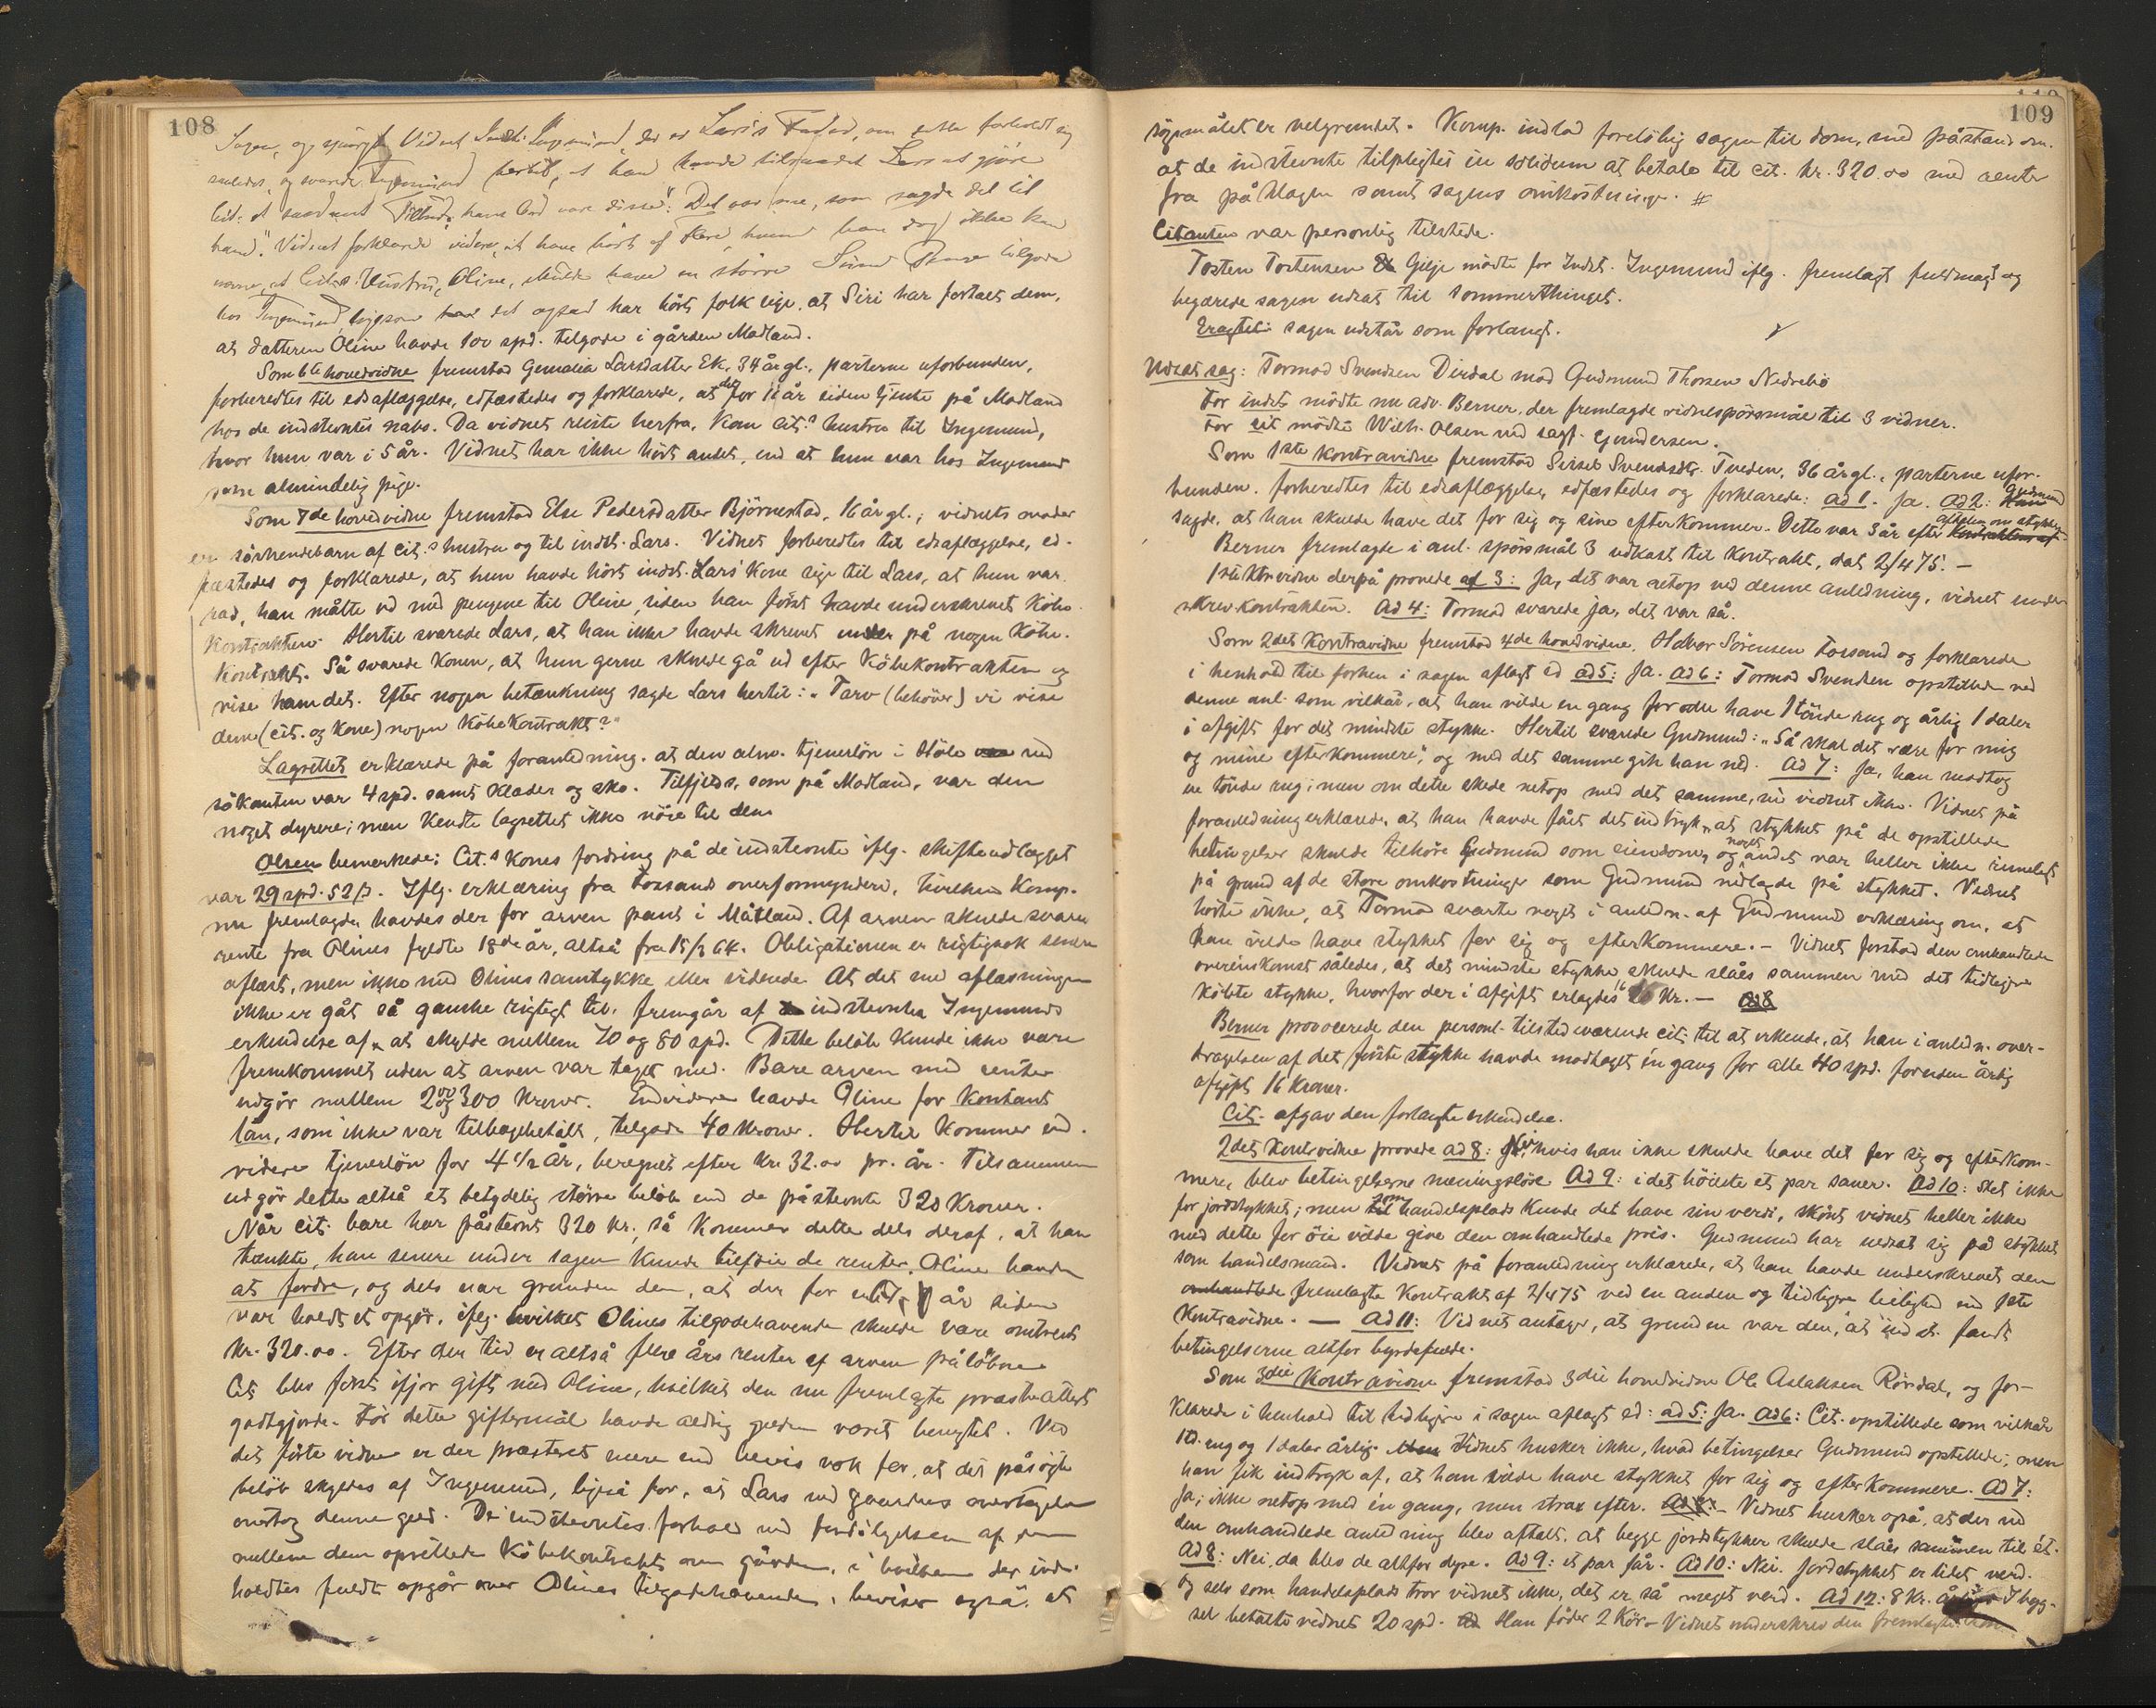 108
Sagen, og spurgt Vidnet Indst. Ingemund, der er Lars's Fader, om dette forholdt sig
saaledes, og svarede Ingemund hertil, at han havde tilraadet Lars at gjøre
Cit. et saadant Tilbud, hans Ord vare disse: "Det var me, som sagde det til
hand." Vidnet forklarede videre, at have hørt af Flere, hvem han dog ikke kan
navne, at Cit.s Hustru, Oline, skulde have en større Sum Penge tilgode
hos Ingemund, ligesom det ogsaa har hört folk sige, at Siri har fortalt dem,
at datteren Oline havde 100 spd. tilgode i gården Madland.
Som 6te hovedvidne fremstod Gemalia Larsdatter Ek, 34 år gl., parterne uforbunden,
forberedtes til edsaflæggelse, edfæstedes og forklarede, at det for 11 år siden tjente på Madland
hos de indstevntes nabo. Da vidnet reiste herfra, kom cit.s hustru til Ingemund,
hvor hun var i 5 år. Vidnet har ikke hört andet, end at hun var hos Ingemund
som almindelig pige.
Som 7de hovedvidne fremstod Else Pedersdatter Björnestad, 16 år gl.; vidnets moder
er sørkendebarn af cit.s hustru og til indst. Lars. Vidnet forberedtes til edsaflæggelse, ed-
fæstedes og forklarede, at hun havde hört indst. Lars' kone sige til Lars, at hun var
rad, han måtte ud med pengene til Oline, siden han först havde underskrevet Købe-
kontrakten. Hertil svarede Lars, at han ikke havde skrevet under på nogen Köbe-
kontrakt. Så svarede konen, at hun gerne skulde gå ud efter Köbekontrakten og
vise ham det. Efter nogen betænkning sagde Lars hertil: "Tarv (behöver) vi vise
dem (cit. og kone) nogen Köbekontrakt?"
Lagrettet erklærede på foranledning, at den alm. tjenerlön i Höle ved
sökanten var 4 spd. samt klæder og sko. Tilfjelds, som på Madland, var den
noget dyrere; men kendte lagrettet ikke nöie til den.
Olsen bemerkede: Cit.s kones fordring på de indstevnte iflg. skifteudlægget
var 29 spd. 52 β. Iflg. erklæring fra Fossands overformynderi, hvilken komp.
nu fremlagde, havdes der for arven pant i Måtland. Af arven skulde svares
rente fra Olines fyldte 18de år, altså fra 15/3 64. Obligationen er rigtignok senere
aflæst, men ikke med Olines samtykke eller vidende. At det med aflæsningen
ikke er gåt så ganske rigtigt til, fremgår af indstevnte Ingemunds
erkendelse af, at skylde mellem 70 og 80 spd. Dette beløb kunde ikke være
fremkommet uden at arven var taget med. Bare arven med renter
udgör mellem 200 og 300 kroner. Endvidere havde Oline for kontant
lån, som ikke var tilbagebetalt, tilgode 40 kroner. Hertil kommer end-
videre tjenerlön for 4 1/2 år, beregnet efter kr. 32.00 pr. år. Tilsammen
udgör dette altså et betydelig större belöb end de påstevnte 320 kroner.
Når cit. bare har påstevnt 320 kr., så kommer dette dels deraf, at han
tænkte, han senere under sagen kunde tilföie de renter, Oline havde
at fordre, og dels var grunden den, at der for år siden
var holdt et opgör, iflg. hvilket Olines tilgodehavende skulde være omtrent
kr. 320.00. Efter den tid er altså flere års renter af arven pålöbne.
Cit. blev först ifjor gift med Oline, hvilket den nu fremlagte præsteattest
godtgjorde. För dette giftermål havde aldrig gælden været benegtet. Ved
det förte vidne er der præsteret mere end bevis nok for, at det påsögte
belöb skyldes af Ingemund, ligeså for, at Lars ved gaardens overtagelse
overtog denne gæld. De indstevntes forhold ved fordölgelsen af den
mellem dem oprettede Köbekontrakt om gården, i hvilken der inde-
holdtes fuldt opgör over Olines tilgodehavende, beviser også, at
109
sögsmålet er velgrundet. Komp. indlod foreløbig sagen til dom, med påstand om,
at de indstevnte tilpligtes in solidum at betale til cit. kr. 320.00 med renter
fra på klagen samt sagens omkostninger. #
Citanten var personlig tilstede.
Tosten Tostensen Gilje mödte for Indst. Ingemund iflg. fremlagt fuldmagt og
begærede sagen udsat til sommerthinget.
Eragtet: sagen udstår som forlangt.
Udsat sag: Tormod Svendsen Dirdal mod Gudmund Thorsen Nedrebö
For indst. mödte nu adv. Berner, der fremlagde vidnespörsmål til 3 vidner.
For cit. mödte Wilh. Olsen ved sagf. Gundersen.
Som 1ste kontravidne fremstod Sissel Svendsdtr. Tveden, 36 år gl., parterne ufor-
bunden, forberedtes til edsaflæggelse, edfæstedes og forklarede: ad 1. Ja. Ad 2: Gudmund
sagde, at han skulde have det for sig og sine efterkommer. Dette var 3 år efter aftalen om stykket
Berner fremlagde i anl. spörsmål 3 udkast til kontrakt, dat. 2/4 75. –
1ste ktrvidne derpå provede ad 3: Ja, det var netop ved denne anledning, vidnet under-
skrev kontrakten. Ad 4: Tormod svarede ja, det var så.
Som 2det kontravidne fremstod 4de hovedvidne, Halvor Sörensen Fossand og forklarede
i henhold til forhen i sagen aflagt ed ad 5: Ja. Ad 6: Tormod Svendsen opstillede ved
denne anl. som vilkår, at han vilde en gang for alle have 1 tönde rug og årlig 1 daler
i afgift for det mindste stykke. Hertil svarede Gudmund: "Så skal det være for mig
og mine efterkommere", og med det samme gik han ned. Ad 7: Ja, han modtog
en tönde rug; men om dette skede netop med det samme, ved vidnet ikke. Vidnet på
foranledning erklærede, at han havde fået det indtryk, at stykket på de opstillede
betingelser skulde tilhöre Gudmund som eiendom, og noget andet var heller ikke rimeligt
på grund af de store omkostninger som Gudmund nedlagde på stykket. Vidnet
hörte ikke, at Tormod svarte noget i anledn. af Gudmunds erklæring om, at
han vilde have stykket for sig og efterkommere. – Vidnet forstod den omhandlede
overenskomst således, at det mindste stykke skulde slåes sammen med det tidligere
köbte stykke, hvorfor der i afgift erlagdes 16 kr. –
Berner provocerede den personl. tilstedeværende cit. til at erkende, at han i anledn. over-
dragelsen af det förste stykke havde modtaget én gang for alle 40 spd. foruden årlig
afgift 16 kroner.
Cit. afgav den forlangte erkendelse.
2det kontrvidne provede ad 8: Nei, hvis han ikke skulde have det for sig og efterkom-
mere, blev betingelserne meningslöse. Ad 9: i det höieste et par sauer. Ad 10: Slet ikke
for jordstykket; men som handelsplads kunde det have sin verdi, skönt vidnet heller ikke
med dette for öie vilde give den omhandlede pris. Gudmund har nedsat sig på stykket
som handelsmand. Vidnet på foranledning erklærede, at han havde underskrevet den
omhandlede fremlagte kontrakt af 2/4 75 ved en anden og tidligere leilighed end 1ste
kontravidne. — Ad 11: Vidnet antager, at grunden var den, at indst. fandt
betingelserne altfor byrdefulde.
Som 3die kontravidne fremstod 3die hovedvidne Ole Aslaksen Rövdal, og for-
klarede i henhold til tidligere i sagen aflagt ed: ad 5: Ja. Ad 6: Cit. opstillede som vilkår
1 td. rug og 1 daler årlig. Vidnet husker ikke, hvad betingelser Gudmund opstillede; men
han fik indtryk af, at han vilde have stykket for sig og efterkommere. Ad 7:
Ja; ikke netop med én gang, men strax efter. Ad 8: Vidnet husker også, at der ved
den omhandlede anledning blev aftalt, at begge jordstykker skulde slåes sammen til ét.
Ad 8: Nei, da blev de altfor dyre. Ad 9: et par får. Ad 10: Nei. Jordstykket er lidet verd.
Og selv som handelsplads tror vidnet ikke, det er så meget verd. Ad 12: 8 kr. årligt. I byg-
sel betalte vidnet 20 spd. Han föder 2 kör. – Vidnet underskrev den fremlagte kon-